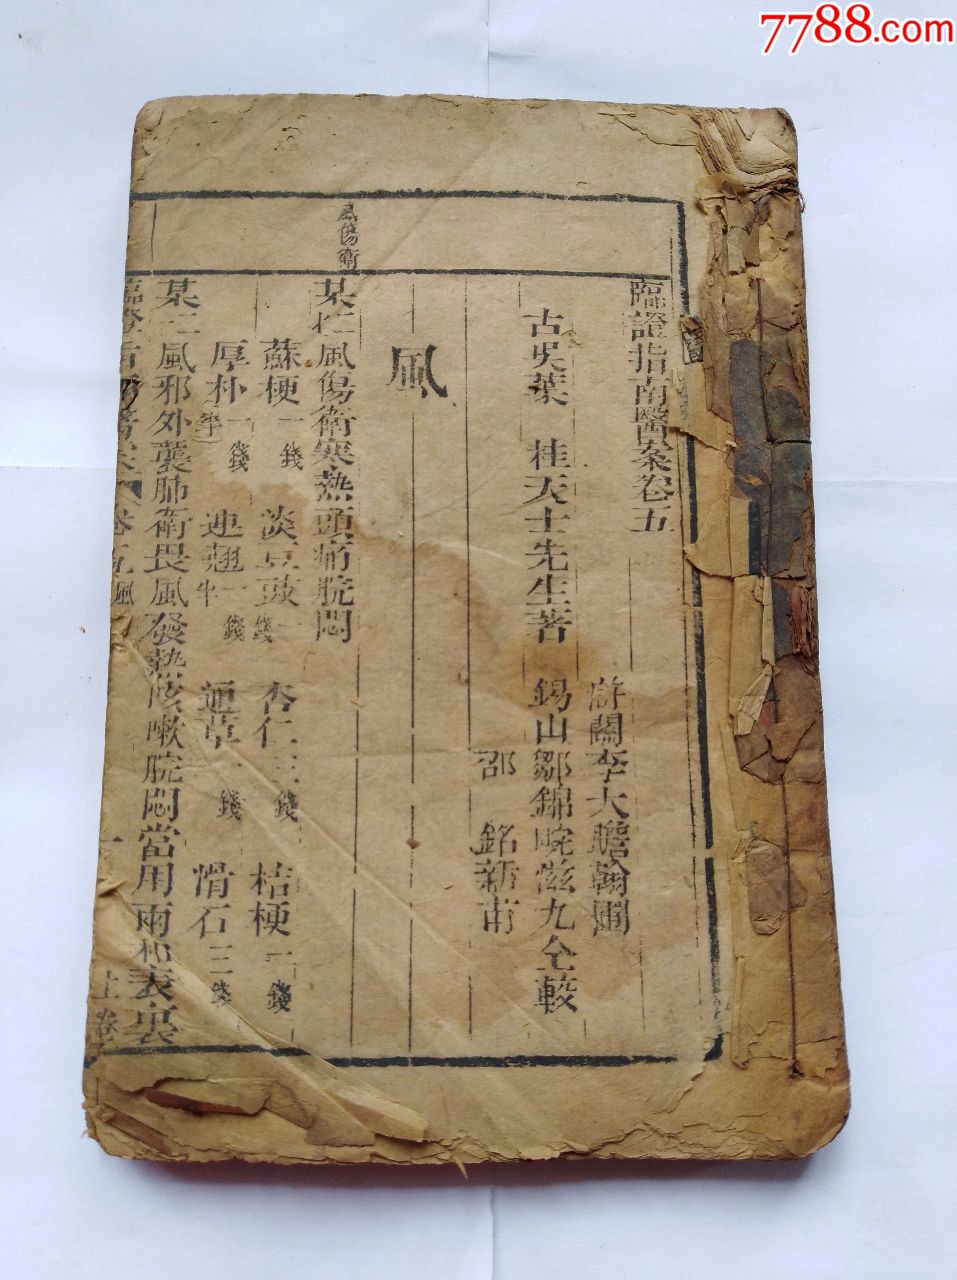 7788.com
臨證指南醫案卷五
滸關李大瞻翰圃
古吳葉 桂天士先生著 錫山鄒錦畹滋九仝較
邵 銘新甫
風
風傷衛
某 風傷衛寒熱頭痛脘悶
蘇梗一錢 淡豆豉一錢 杏仁三錢 桔梗一錢
厚朴一錢半 連翹一錢半 通草一錢 滑石三錢
某 風邪外襲肺衛畏風發熱咳嗽脘悶當用兩和表裏
臨證指南醫案 卷五 風 一 上卷